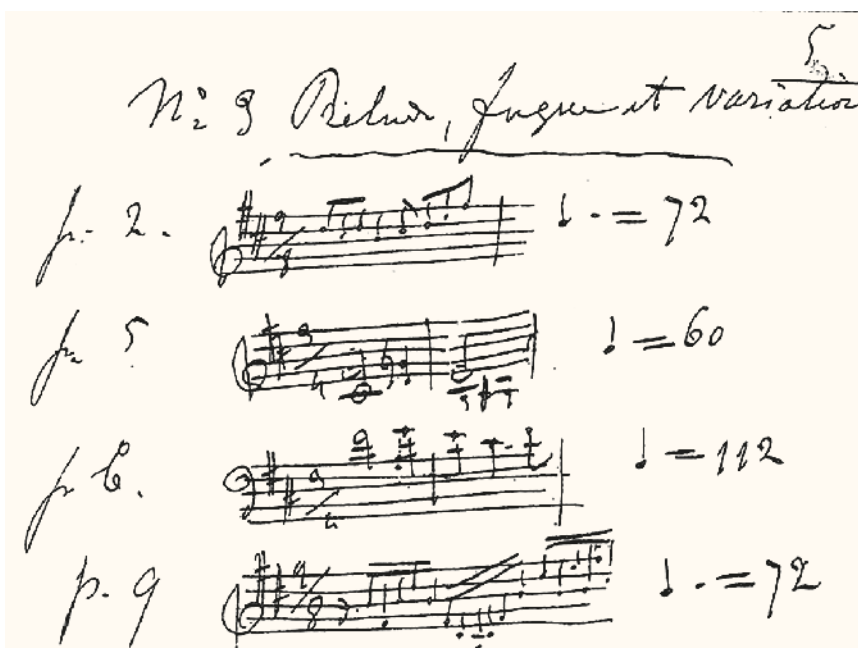 5.
Nº 3 Prelude, fugue et variation
p. 2. 9/8 ♩. = 72
p. 5 3/4 ♩ = 60
p. 6. 3/4 ♩ = 112
p. 9 9/8 ♩. = 72